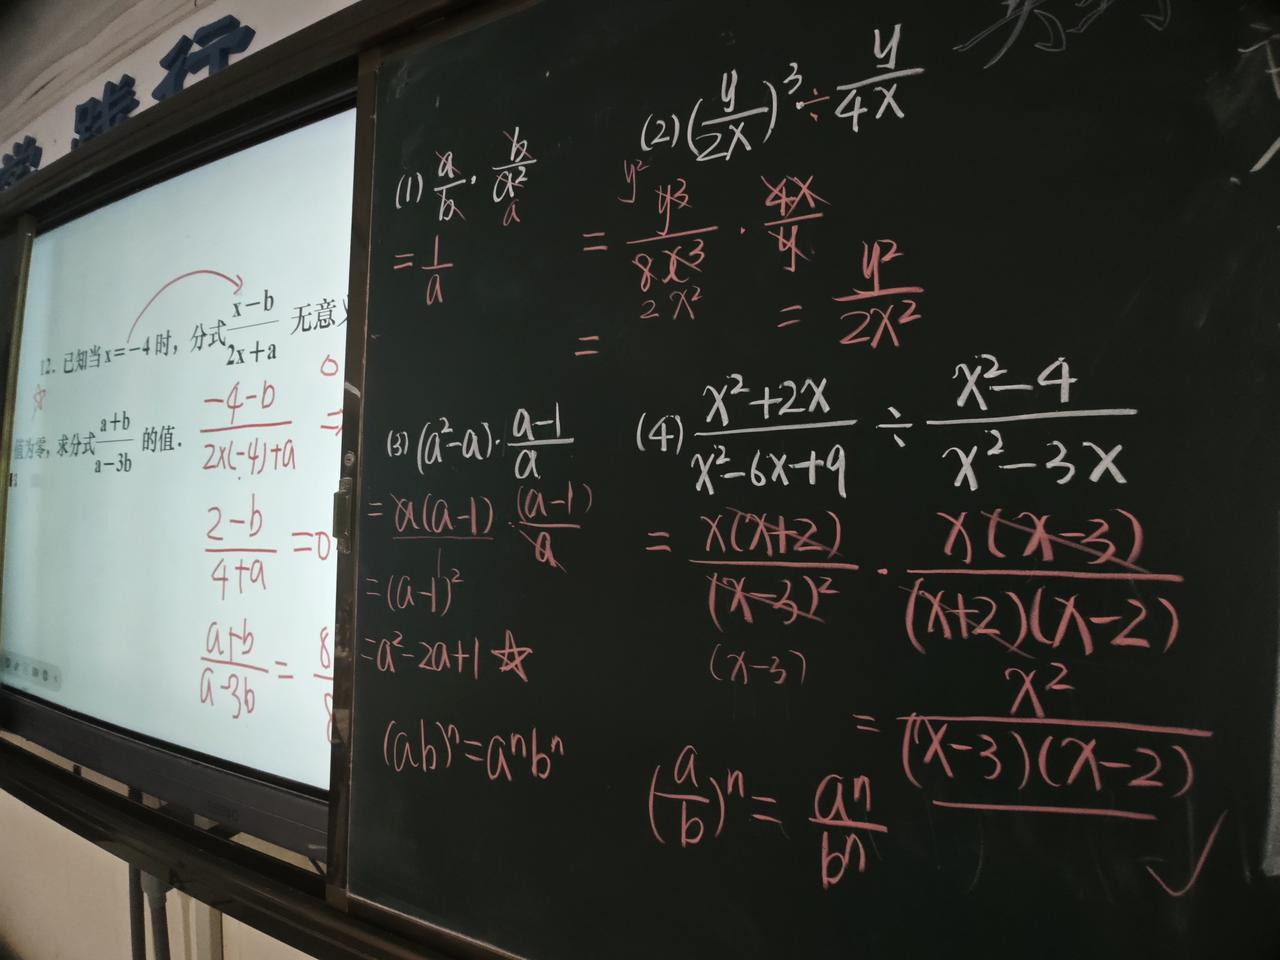 践行
12. 已知当x=-4时，分式(x-b)/(2x+a) 无意
值为零，求分式(a+b)/(a-3b) 的值.
(-4-b)/(2x(-4)+a)
0
(2-b)/(4+a) =0
(a+b)/(a-3b) = 8
(1) a/b · b/a²
a
= 1/a
(2) (y/2x)³ ÷ y/4x
y²
= y³/8x³ · 4x/y
2x²
= y²/2x²
=
(3) (a²-a)· (a-1)/a
= a(a-1)/1 · (a-1)/a
=(a-1)²
=a²-2a+1 ☆
(ab)ⁿ=aⁿbⁿ
(4) (x²+2x)/(x²-6x+9) ÷ (x²-4)/(x²-3x)
= x(x+2)/(x-3)² · x(x-3)/(x+2)(x-2)
(x-3)
= x²/(x-3)(x-2)
(a/b)ⁿ = aⁿ/bⁿ